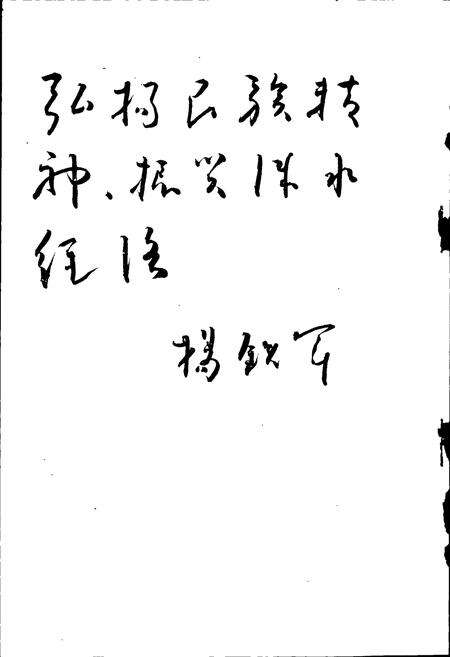 弘扬民族精
神、振兴洙水
经济
杨锐军